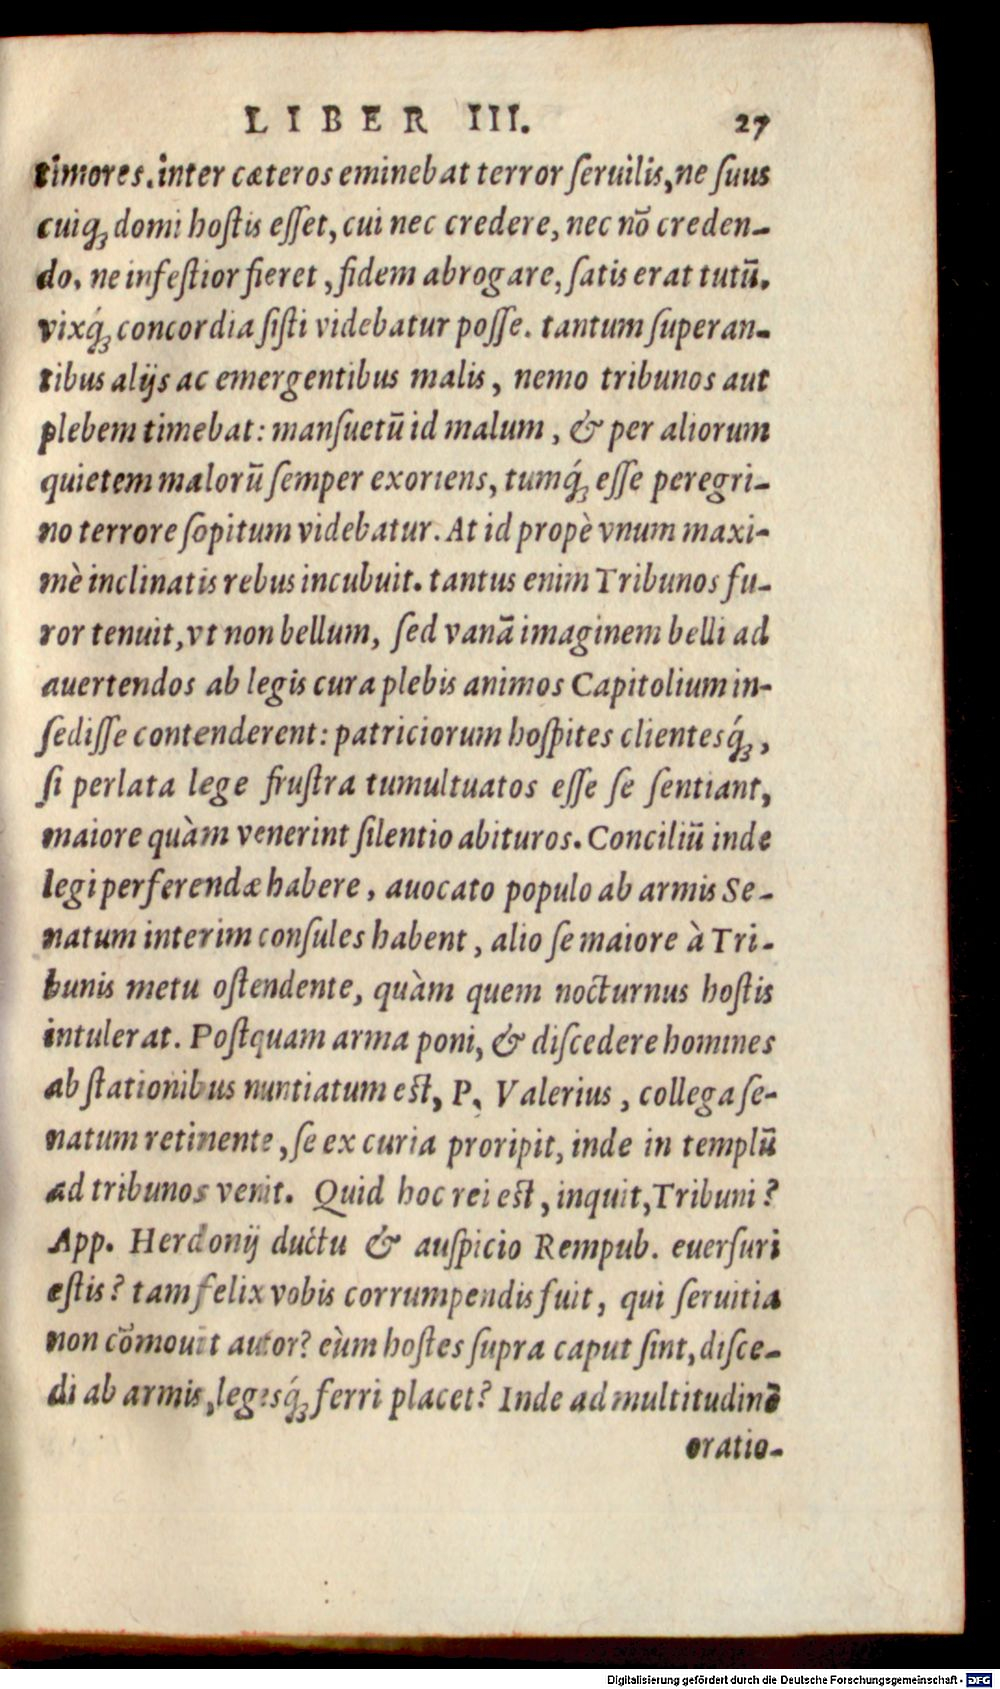 LIBER III. 27
timores. inter cæteros eminebat terror ſeruilis, ne ſuus
cuiq; domi hoſtis eſſet, cui nec credere, nec nõ creden-
do, ne infeſtior fieret, fidem abrogare, ſatis erat tutũ.
vixq́; concordia ſiſti videbatur poſſe. tantum ſuperan-
tibus alijs ac emergentibus malis, nemo tribunos aut
plebem timebat: manſuetũ id malum, & per aliorum
quietem malorũ ſemper exoriens, tumq́; eſſe peregri-
no terrore ſopitum videbatur. At id propè vnum maxi-
mè inclinatis rebus incubuit. tantus enim Tribunos fu-
ror tenuit, vt non bellum, ſed vanã imaginem belli ad
auertendos ab legis cura plebis animos Capitolium in-
ſediſſe contenderent: patriciorum hoſpites clientesq́;,
ſi perlata lege fruſtra tumultuatos eſſe ſe ſentiant,
maiore quàm venerint ſilentio abituros. Conciliũ inde
legi perferendæ habere, auocato populo ab armis Se-
natum interim conſules habent, alio ſe maiore à Tri-
bunis metu oſtendente, quàm quem nocturnus hoſtis
intulerat. Poſtquam arma poni, & diſcedere homines
ab ſtationibus nuntiatum eſt, P. Valerius, collega ſe-
natum retinente, ſe ex curia proripit, inde in templũ
ad tribunos venit. Quid hoc rei eſt, inquit, Tribuni?
App. Herdonij ductu & auſpicio Rempub. euerſuri
eſtis? tam felix vobis corrumpendis fuit, qui ſeruitia
non cõmouit autor? eùm hoſtes ſupra caput ſint, diſce-
di ab armis, legesq́; ferri placet? Inde ad multitudinẽ
oratio-
Digitalisierung gefördert durch die Deutsche Forschungsgemeinschaft - DFG